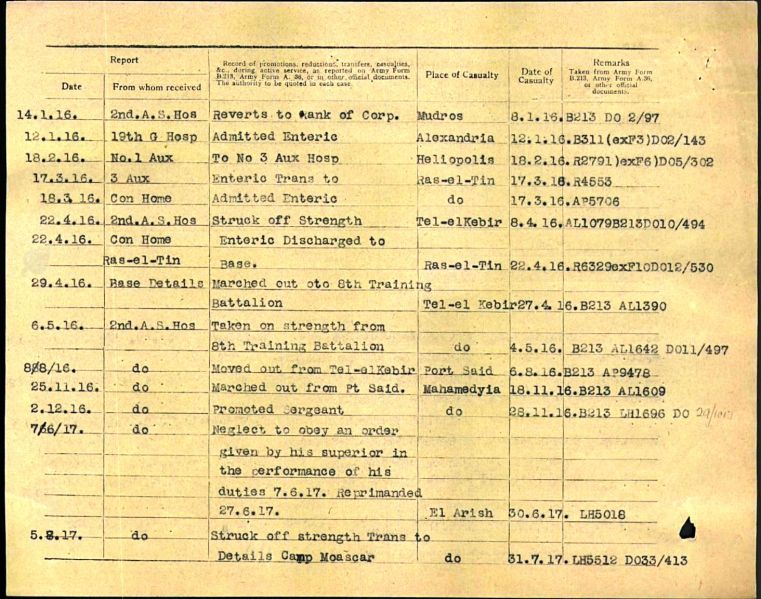 Report
Record of promotions, reductions, transfers, casualties,
&c., during active service, as reported on Army Form
B.213, Army Form A. 36, or in other official documents.
The authority to be quoted in each case.
Place of Casualty
Date of
Casualty
Remarks
Taken from Army Form
B.213, Army Form A.36,
or other official
documents.
Date From whom received
14.1.16. 2nd.A.S.Hos Reverts to Rank of Corp. Mudros 8.1.16.B213 DO 2/97
12.1.16. 19th G Hosp Admitted Enteric Alexandria 12.1.16.B311(exF3)DO2/143
18.2.16. No.1 Aux To No 3 Aux Hosp Heliopolis 18.2.16.R2791)exF6)DO5/302
17.3.16. 3 Aux Enteric Trans to Ras-el-Tin 17.3.16.R4553
18.3 16. Con Home Admitted Enteric do 17.3.16.AP5706
22.4.16. 2nd.A.S.Hos Struck off Strength Tel-elKebir 8.4.16.AL1079B213DO10/494
22.4.16. Con Home Enteric Discharged to
Ras-el-Tin Base. Ras-el-Tin 22.4.16.R6329exF10DO12/530
29.4.16. Base Details Marched out oto 8th Training
Battalion Tel-el Kebir 27.4.16.B213 AL1390
6.5.16. 2nd.A.S.Hos Taken on strength from
8th Training Battalion do 4.5.16. B213 AL1642 DO11/497
8/8/16. do Moved out from Tel-elKebir Port Said 6.8.16.B213 AP9478
25.11.16. do Marched out from Pt Said. Mahamedyia 18.11.16.B213 AL1609
2.12.16. do Promoted Sergeant do 28.11.16.B213 LH1696 DO
7/6/17. do Neglect to obey an order
given by his superior in
the performance of his
duties 7.6.17. Reprimanded
27.6.17. El Arish 30.6.17. LH5018
5.8.17. do Struck off strength Trans to
Details Camp Moascar do 31.7.17.LH5512 DO33/413